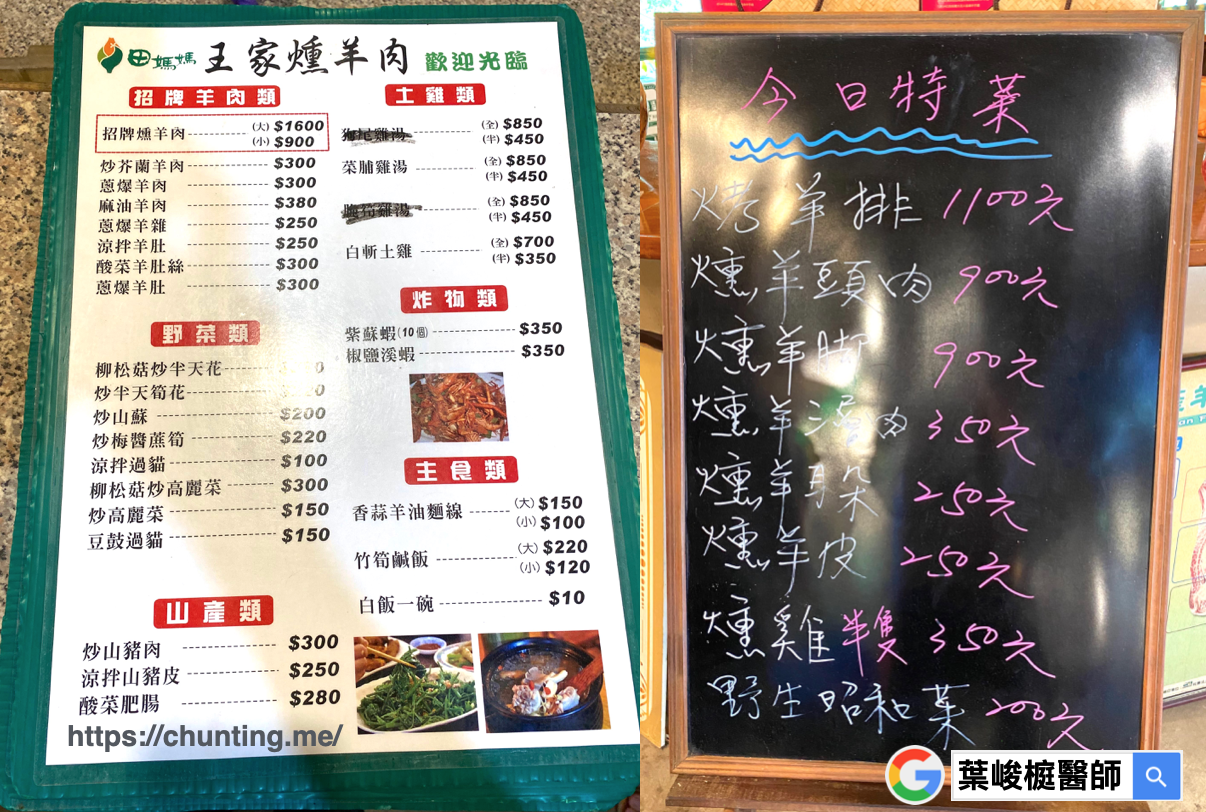 田媽媽 王家燻羊肉 歡迎光臨
招牌羊肉類
招牌燻羊肉 (大) $1600
(小) $900
炒芥蘭羊肉 $300
蔥爆羊肉 $300
麻油羊肉 $380
蔥爆羊雜 $250
涼拌羊肚 $250
酸菜羊肚絲 $300
蔥爆羊肚 $300
野菜類
柳松菇炒半天花
炒半天筍花
炒山蘇 $200
炒梅醬蔗筍 $220
涼拌過貓 $100
柳松菇炒高麗菜 $300
炒高麗菜 $150
豆鼓過貓 $150
山產類
炒山豬肉 $300
涼拌山豬皮 $250
酸菜肥腸 $280
土雞類
雞湯 (全) $850
(半) $450
菜脯雞湯 (全) $850
(半) $450
雞湯 (全) $850
(半) $450
白斬土雞 (全) $700
(半) $350
炸物類
紫蘇蝦(10個) $350
椒鹽溪蝦 $350
主食類
香蒜羊油麵線 (大) $150
(小) $100
竹筍鹹飯 (大) $220
(小) $120
白飯一碗 $10
https://chunting.me/
今日特菜
烤羊排 1100元
燻羊頭肉 900元
燻羊腳 900元
燻羊活肉 350元
燻羊耳朵 250元
燻羊皮 250元
燻雞半隻 350元
野生昭和菜 200元
葉峻榳醫師